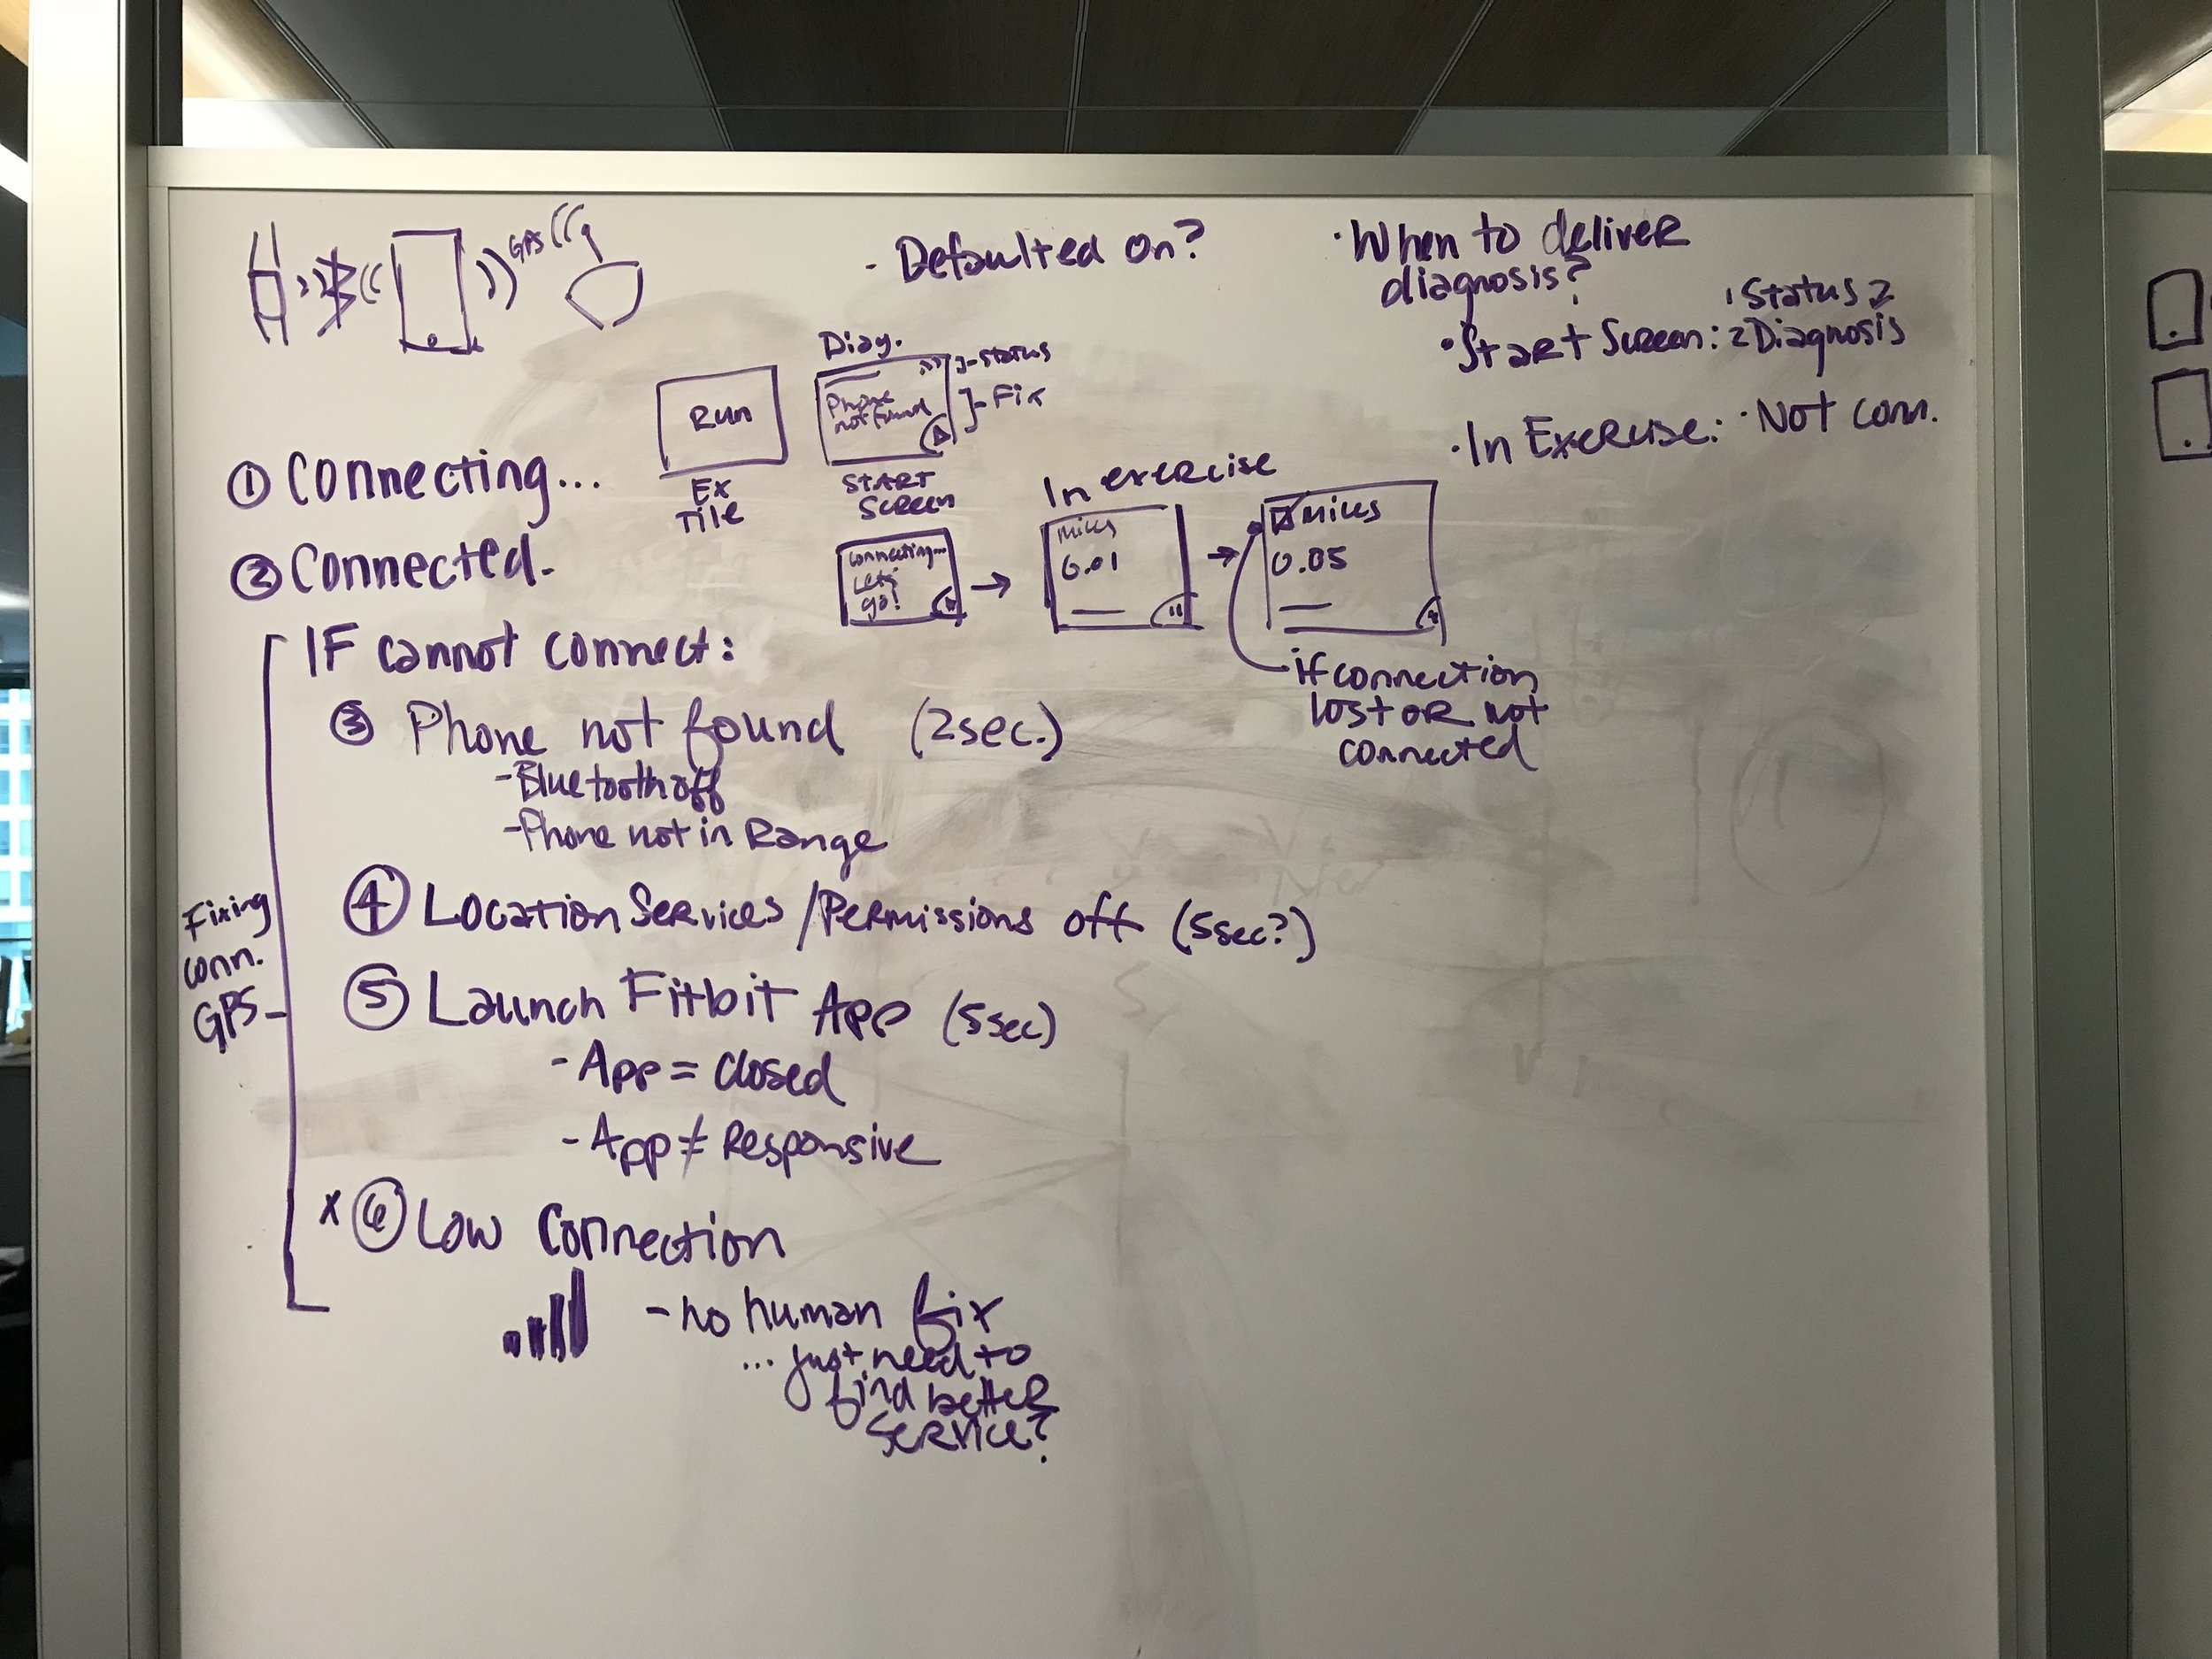 GPS
- Defaulted on?
· When to deliver
diagnosis?
· Start Screen: 1 Status 2
2 Diagnosis
· In Exercise: · Not conn.
Run
Ex
Tile
Diag.
Phone
not found
- Status
- Fix
START
Screen
① Connecting...
② Connected.
Connecting...
Let's
go!
In exercise
Miles
0.01
Miles
0.05
if connection
lost or not
connected
IF cannot connect:
③ Phone not found (2sec.)
- Bluetooth off
- Phone not in Range
④ Location Services/Permissions off (5sec?)
⑤ Launch Fitbit App (5sec)
- App = closed
- App ≠ Responsive
x ⑥ Low Connection
- no human fix
... just need to
find better
service?
Fixing
conn.
GPS -